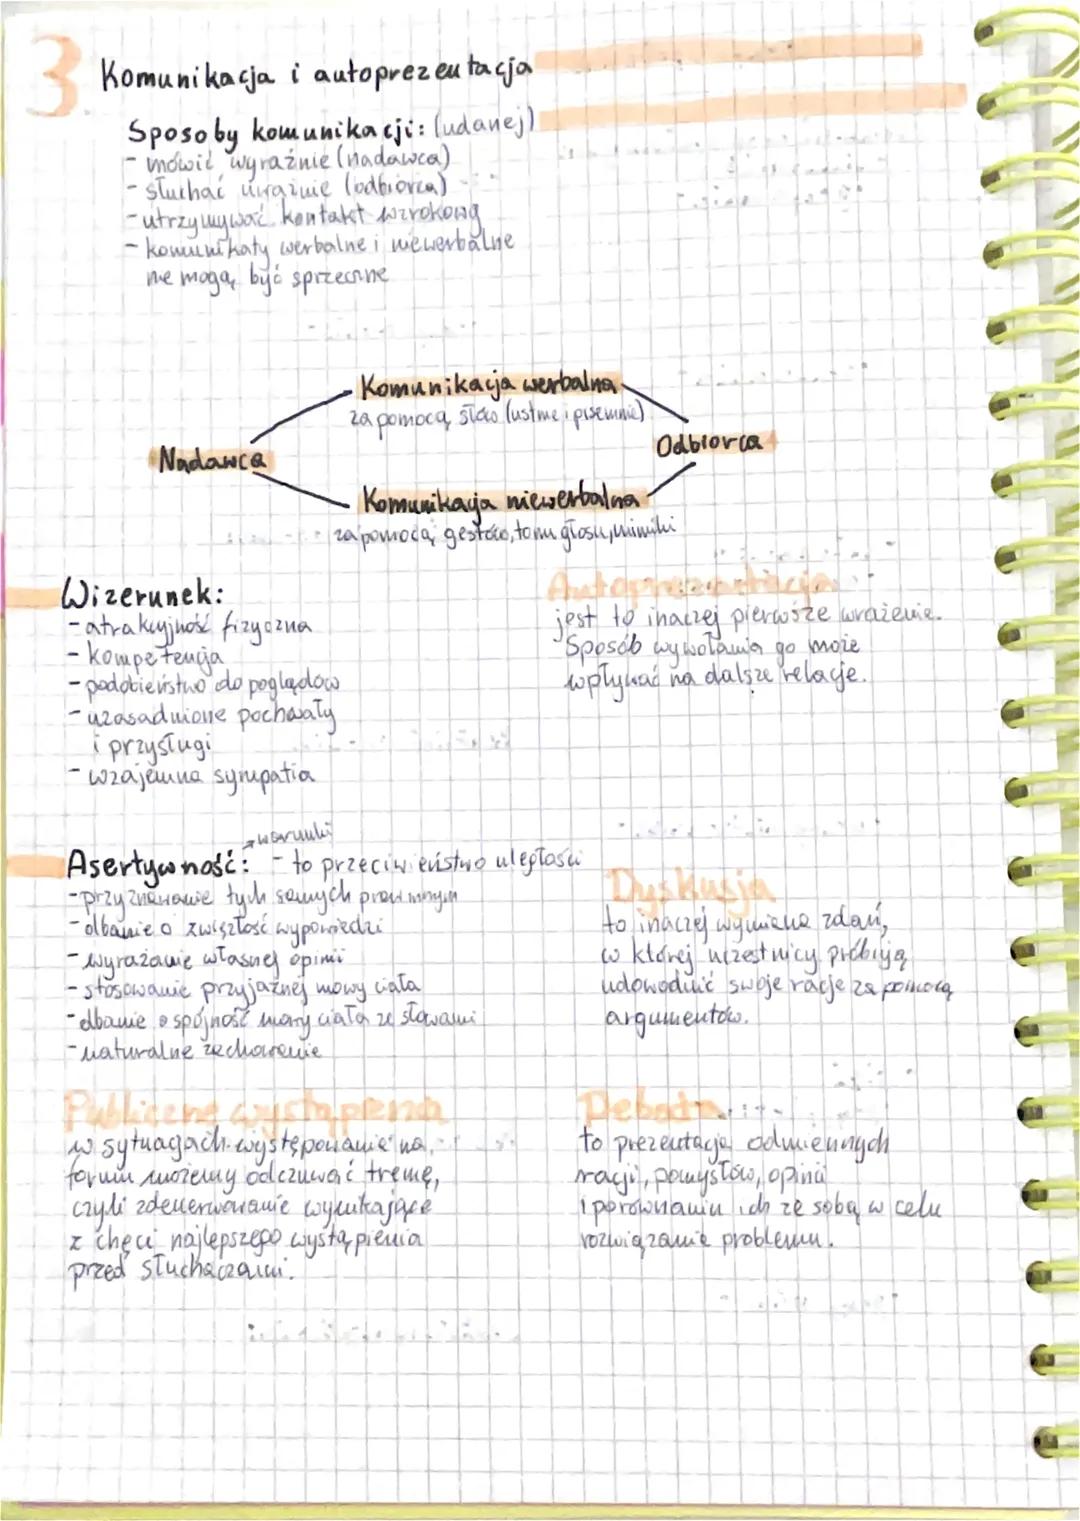 3. Komunikacja i autoprezentacja
Sposoby komunikacji: (udanej)
- mówić wyraźnie (nadawca)
- słuchać uważnie (odbiorca)
- utrzymywać kontakt wzrokowy
- komunikaty werbalne i niewerbalne
nie mogą być sprzeczne
Komunikacja werbalna
za pomocą słów (ustnie i pisemnie)
Nadawca
Odbiorca
Komunikacja niewerbalna
za pomocą gestów, tonu głosu, mimiki
Wizerunek:
- atrakcyjność fizyczna
- kompetencja
- podobieństwo do poglądów
- uzasadnione pochwały
i przysługi
- wzajemna sympatia
Autoprezentacja
jest to inaczej pierwsze wrażenie.
Sposób wywołania go może
wpływać na dalsze relacje.
warunki
Asertywność: - to przeciwieństwo uległości
- przyznawanie tych samych praw innym
- dbanie o zwięzłość wypowiedzi
- wyrażanie własnej opinii
- stosowanie przyjaznej mowy ciała
- dbanie o spójność mowy ciała ze słowami
- naturalne zachowanie
Dyskusja
to inaczej wymiana zdań,
w której uczestnicy próbują
udowodnić swoje racje za pomocą
argumentów.
Publiczne wystąpienia
w sytuacjach występowania na
forum możemy odczuwać tremę,
czyli zdenerwowanie wynikające
z chęci najlepszego wystąpienia
przed słuchaczami.
Debata
to prezentacja odmiennych
racji, pomysłów, opinii
i porównaniu ich ze sobą w celu
rozwiązania problemu.